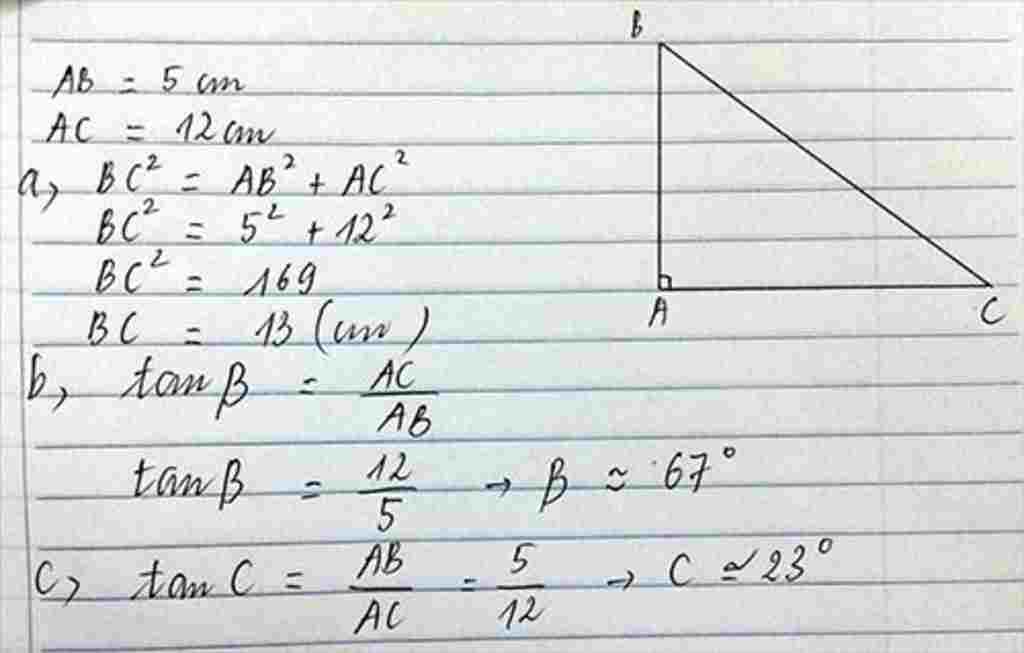 AB = 5 cm
AC = 12 cm
a, BC² = AB² + AC²
BC² = 5² + 12²
BC² = 169
BC = 13 (cm)
b, tan β = AC/AB
tan β = 12/5 → β ≃ 67°
c, tan C = AB/AC = 5/12 → C ≃ 23°
B
A
C